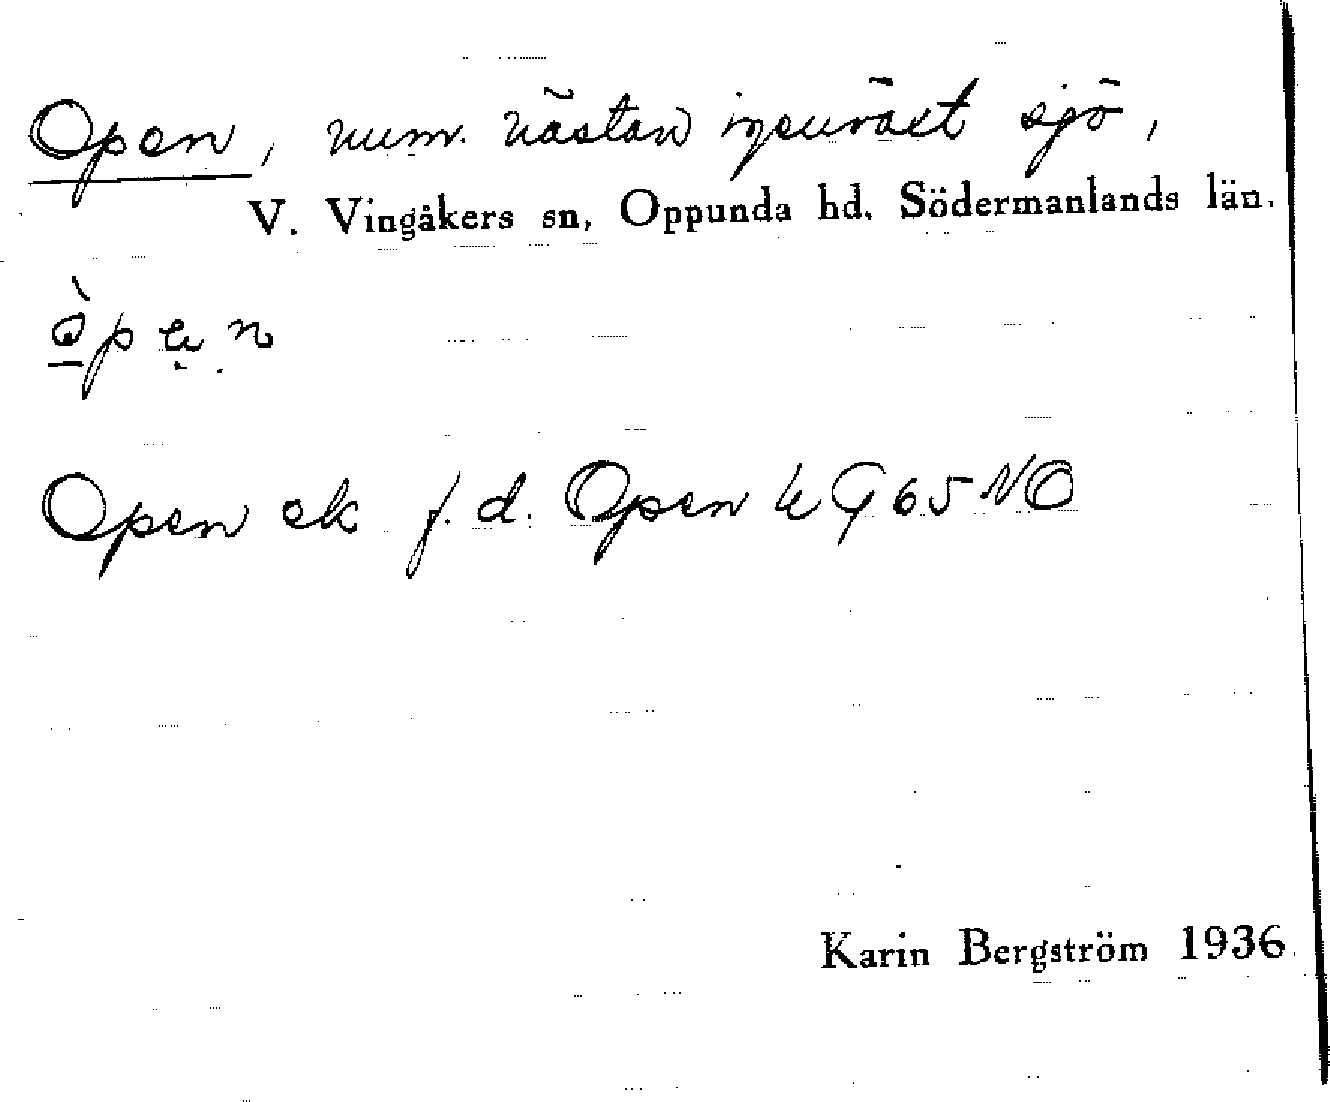 Open, num. nästan igenväxt sjö,
V. Vingåkers sn, Oppunda hd. Södermanlands län.
òpen
Open ek f.d. Open k G 65 NO
Karin Bergström 1936